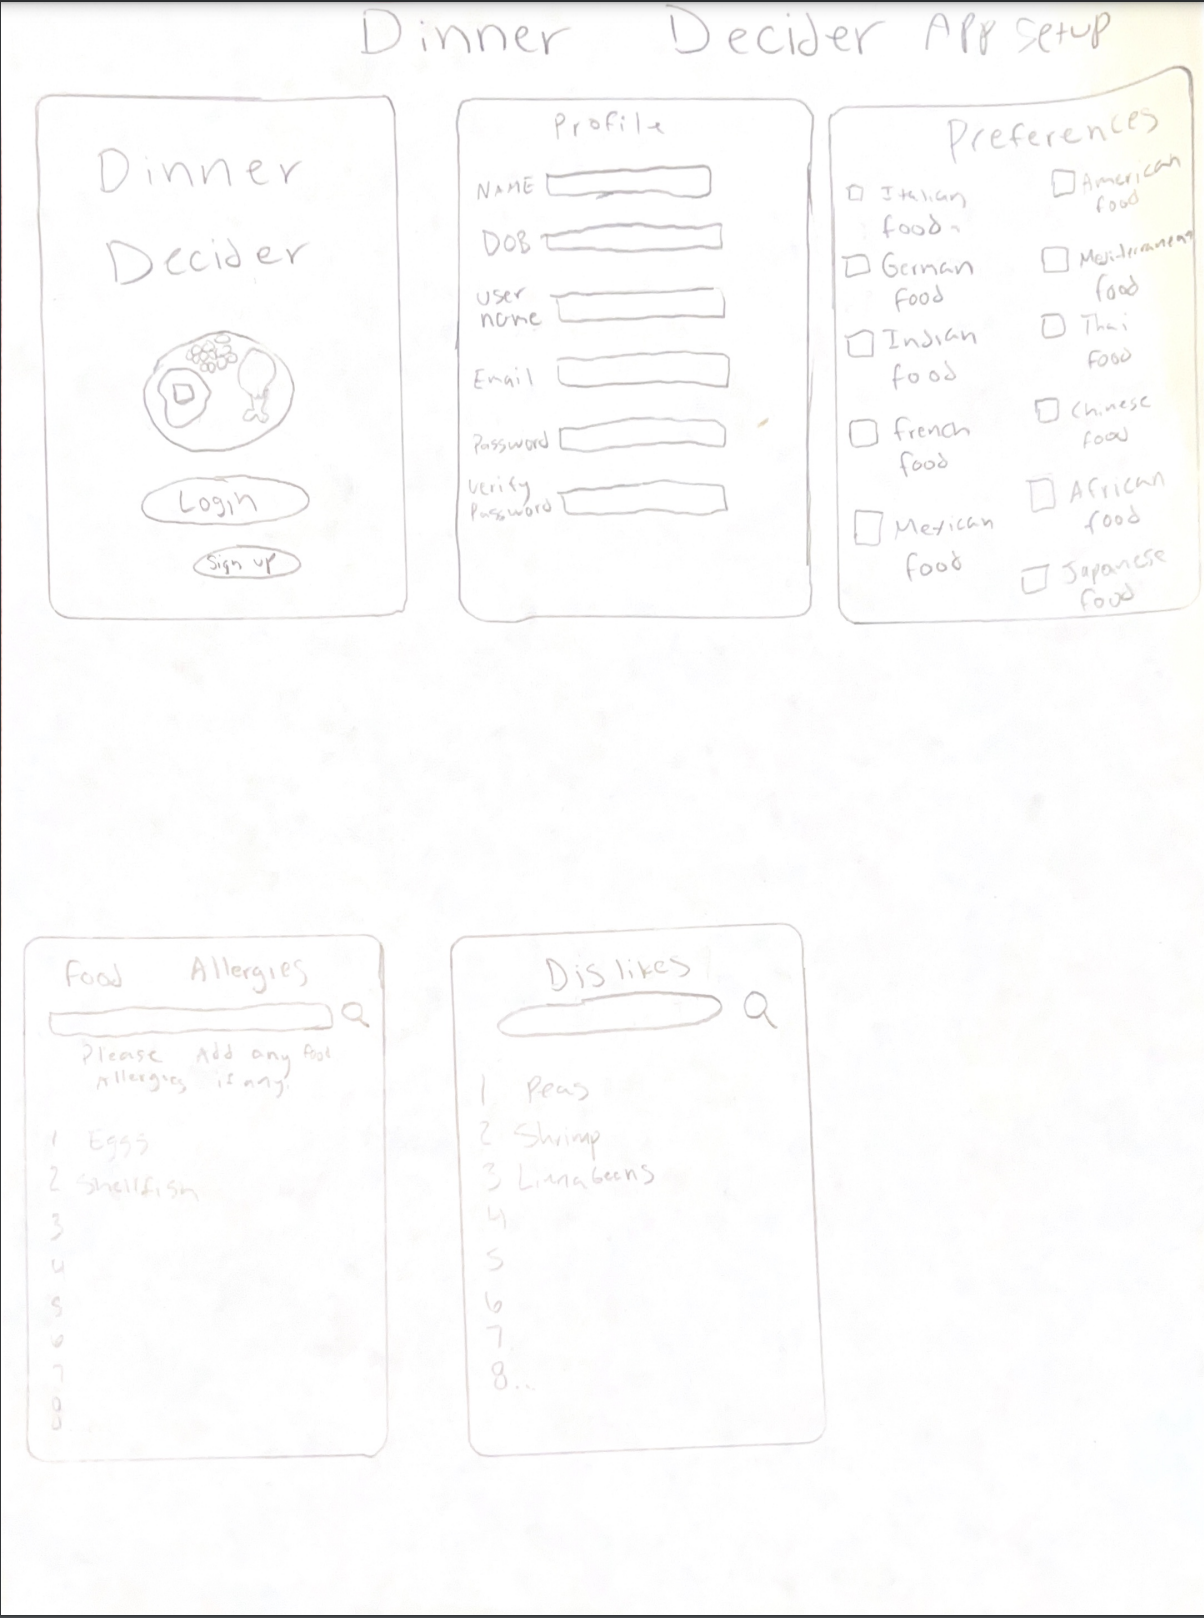 Dinner Decider App Setup
Dinner
Decider
Login
Sign up
Profile
NAME
DOB
user
name
Email
Password
Verify
Password
Preferences
Italian
food
German
food
Indian
food
french
food
Mexican
food
American
food
Mediterranean
food
Thai
food
Chinese
food
African
food
Japanese
food
Food Allergies
Please Add any food
Allergies if any.
1 Eggs
2 Shellfish
3
4
5
6
7
8
Dislikes
1 Peas
2 Shrimp
3 Limabeens
4
5
6
7
8..